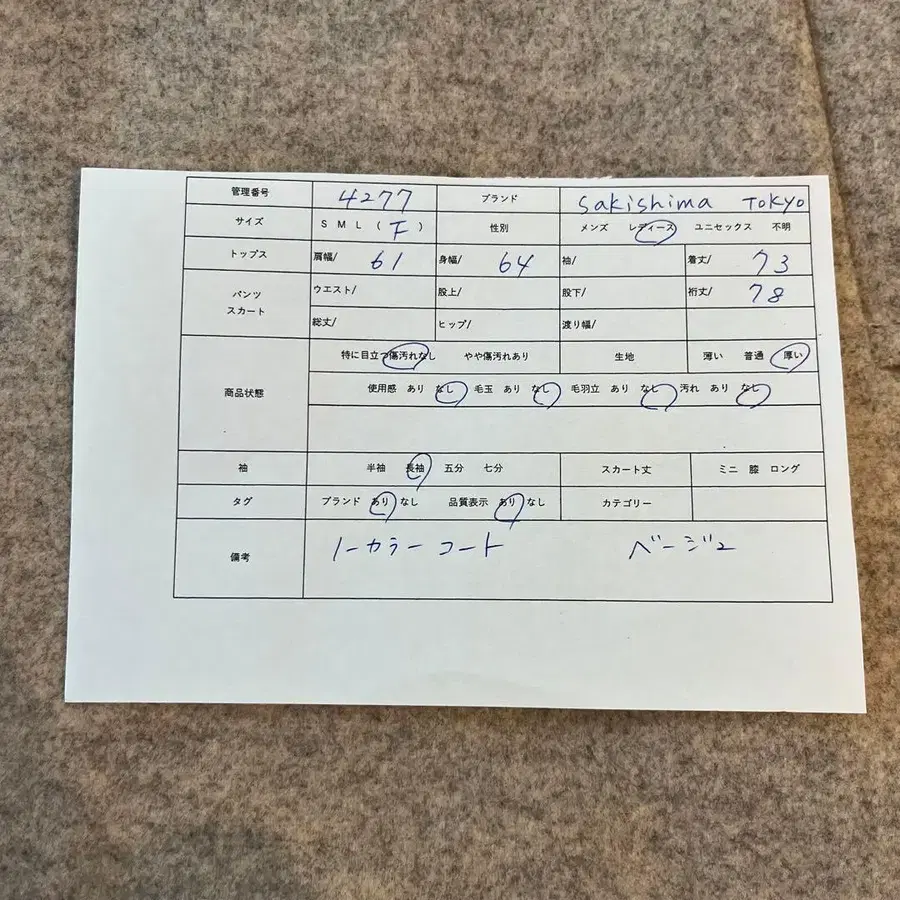 管理番号 4277 ブランド Sakishima TOKYO
サイズ S M L ( F ) 性別 メンズ レディース ユニセックス 不明
トップス 肩幅/ 61 身幅/ 64 袖/ 着丈/ 73
パンツ スカート ウエスト/ 股上/ 股下/ 裄丈/ 78
総丈/ ヒップ/ 渡り幅/
商品状態 特に目立つ傷汚れなし やや傷汚れあり 生地 薄い 普通 厚い
使用感 あり なし 毛玉 あり なし 毛羽立 あり なし 汚れ あり なし
袖 半袖 長袖 五分 七分 スカート丈 ミニ 膝 ロング
タグ ブランド あり なし 品質表示 あり なし カテゴリー
備考 ノーカラーコート ベージュ